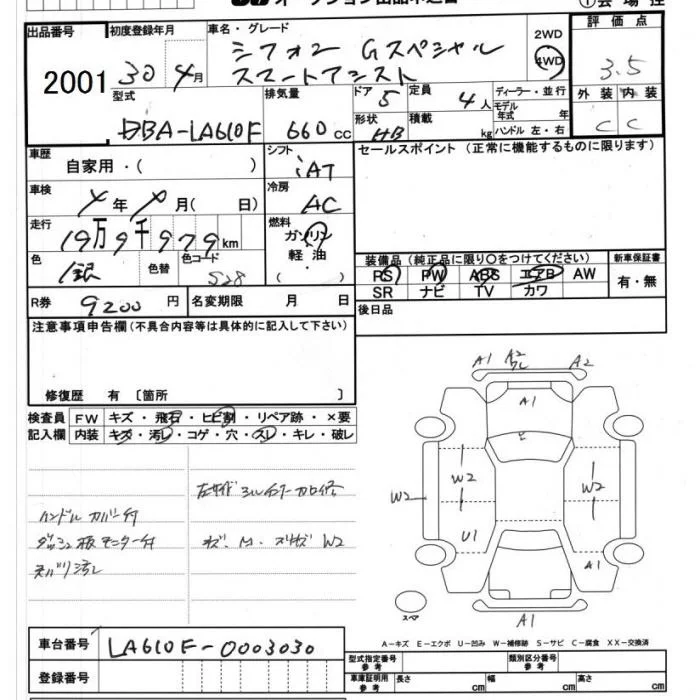 オークション出品申込書
①会場控
出品番号 2001
初度登録年月 30年 4月
車名・グレード シフォン Gスペシャル
スマートアシスト
2WD
4WD
評価点 3.5
外装 内装
C C
型式 DBA-LA610F
排気量 660cc
ドア 5
形状 HB
定員 4人
積載 kg
ディーラー・並行
モデル年式 年
ハンドル 左・右
車歴 自家用・( )
シフト iAT
セールスポイント (正常に機能するものに限ります)
車検 年 月( 日)
冷房 AC
走行 19万9千979km
燃料 ガソリン
軽油
( )
色 銀 色替 色コード S28
装備品 (純正品に限り○をつけてください)
新車保証書
PS PW ABS エアB AW
有・無
SR ナビ TV カワ
R券 9200円
名変期限 月 日
後日品
注意事項申告欄 (不具合内容等は具体的に記入して下さい)
修復歴 有〔箇所 〕
検査員 FW キズ・飛石・ヒビ割・リペア跡・×要
記入欄 内装 キズ・汚レ・コゲ・穴・スレ・キレ・破レ
ハンドル カバー付
ダッシュ板 モニター付
A1 A2 A2
A1
W2 W2 W2
U1 A1
A1
スペア
A-キズ E-エクボ U-凹み W-補修跡 S-サビ C-腐食 XX-交換済
車台番号 LA610F-0003030
登録番号
型式指定番号 参考
類別区分番号 参考
車庫証明用 参考 長さ cm 幅 cm 高さ cm